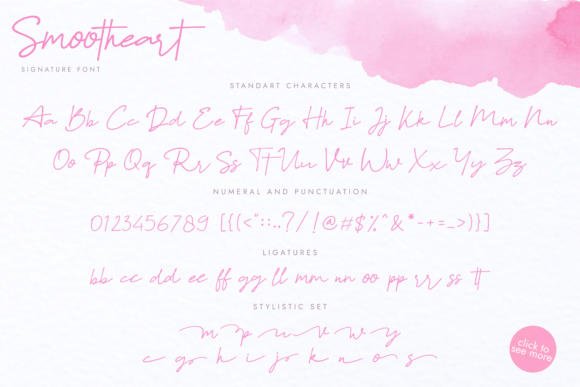 Smootheart
SIGNATURE FONT
STANDART CHARACTERS
Aa Bb Cc Dd Ee Ff Gg Hh Ii Jj Kk Ll Mm Nn
Oo Pp Qq Rr Ss Tt Uu Vv Ww Xx Yy Zz
NUMERAL AND PUNCTUATION
0123456789 [{(<"::..?/!@#$%^&*-+=_>)}]
LIGATURES
bb cc dd ee ff gg ll mm nn oo pp rr ss tt
STYLISTIC SET
m p u v w y
c g h i j k n o s
click to
see more